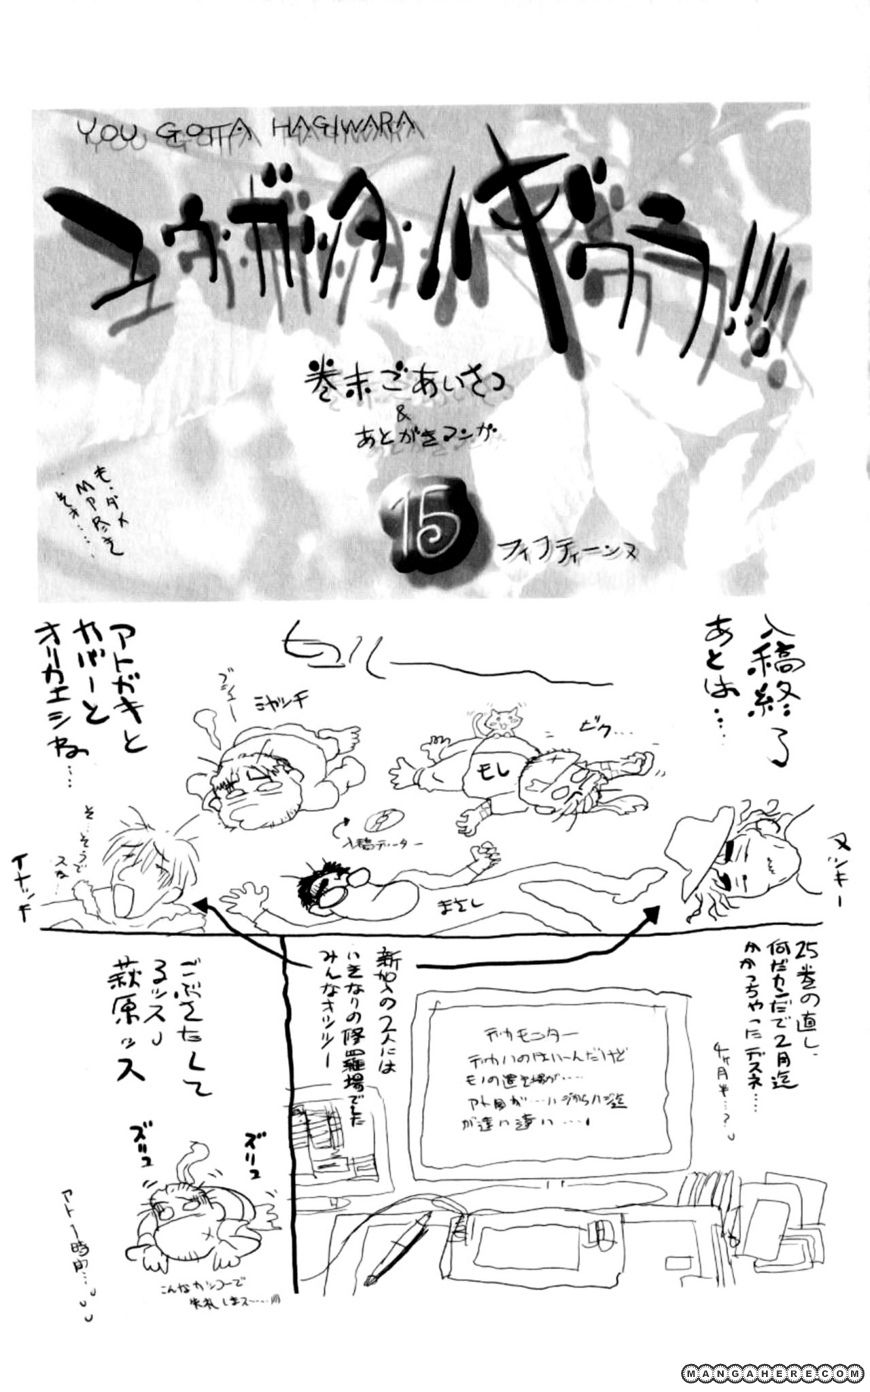 YOU GOTTA HAGIWARA
ユウ・ガッタ・ハギワラ!!!
巻末ごあいさつ
&
あとがきマンガ
15
フィフティーンス
も、ダメ
入稿終了
あとは…
ヒュルー
ビク…
もし
ミヤッチ
入稿データー
まさし
ヌッキー
アトガキと
カバーと
オリカエシね…
そ…そうで
スね…
イナッチ
25巻の直し、
何だカンだで2月迄
かかっちゃったデスネ…
4ヶ月半…?
デカモニター
デカいのはいーんだけど
モノの置き場が……
アト目が…ハジからハジ迄
が遠い遠い…。
新加入の2人には
いきなりの修羅場でした
みんなオツツー
ごぶさたして
るッス
萩原ッス
ズリュ
ズリュ
こんなカッコーで
失礼しまス……!!!
アト1時間…
MANGAHERE.COM